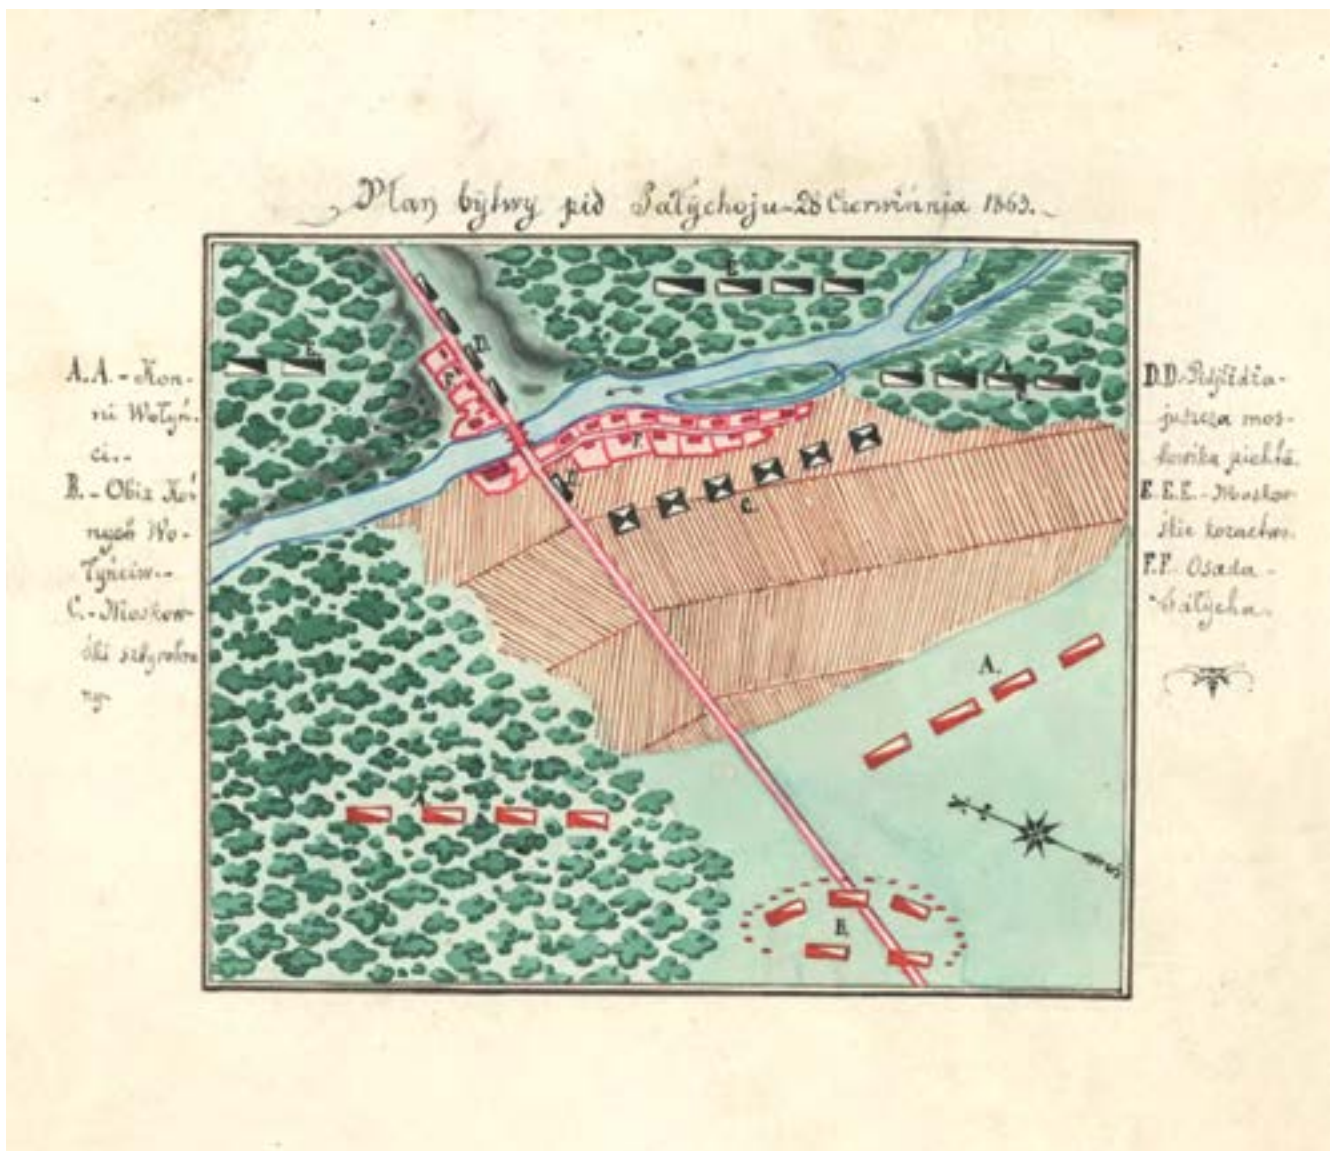 Plan bytwy pid Sałychoju - 28 Czerwinnia 1863.
A.A. - Kon-
ni Wołyń-
ci. -
B. - Obiz Kon
nych Wo-
łyńciw. -
C. - Moskow-
ski
ny.
D.D.
juszcza mos-
kowśka piehta.
E.E.E. - Moskow
śkie kozactwo.
F.F. Osada -
Sałycha.
E.
E.
D.
F.
F.
C.
A.
A.
B.